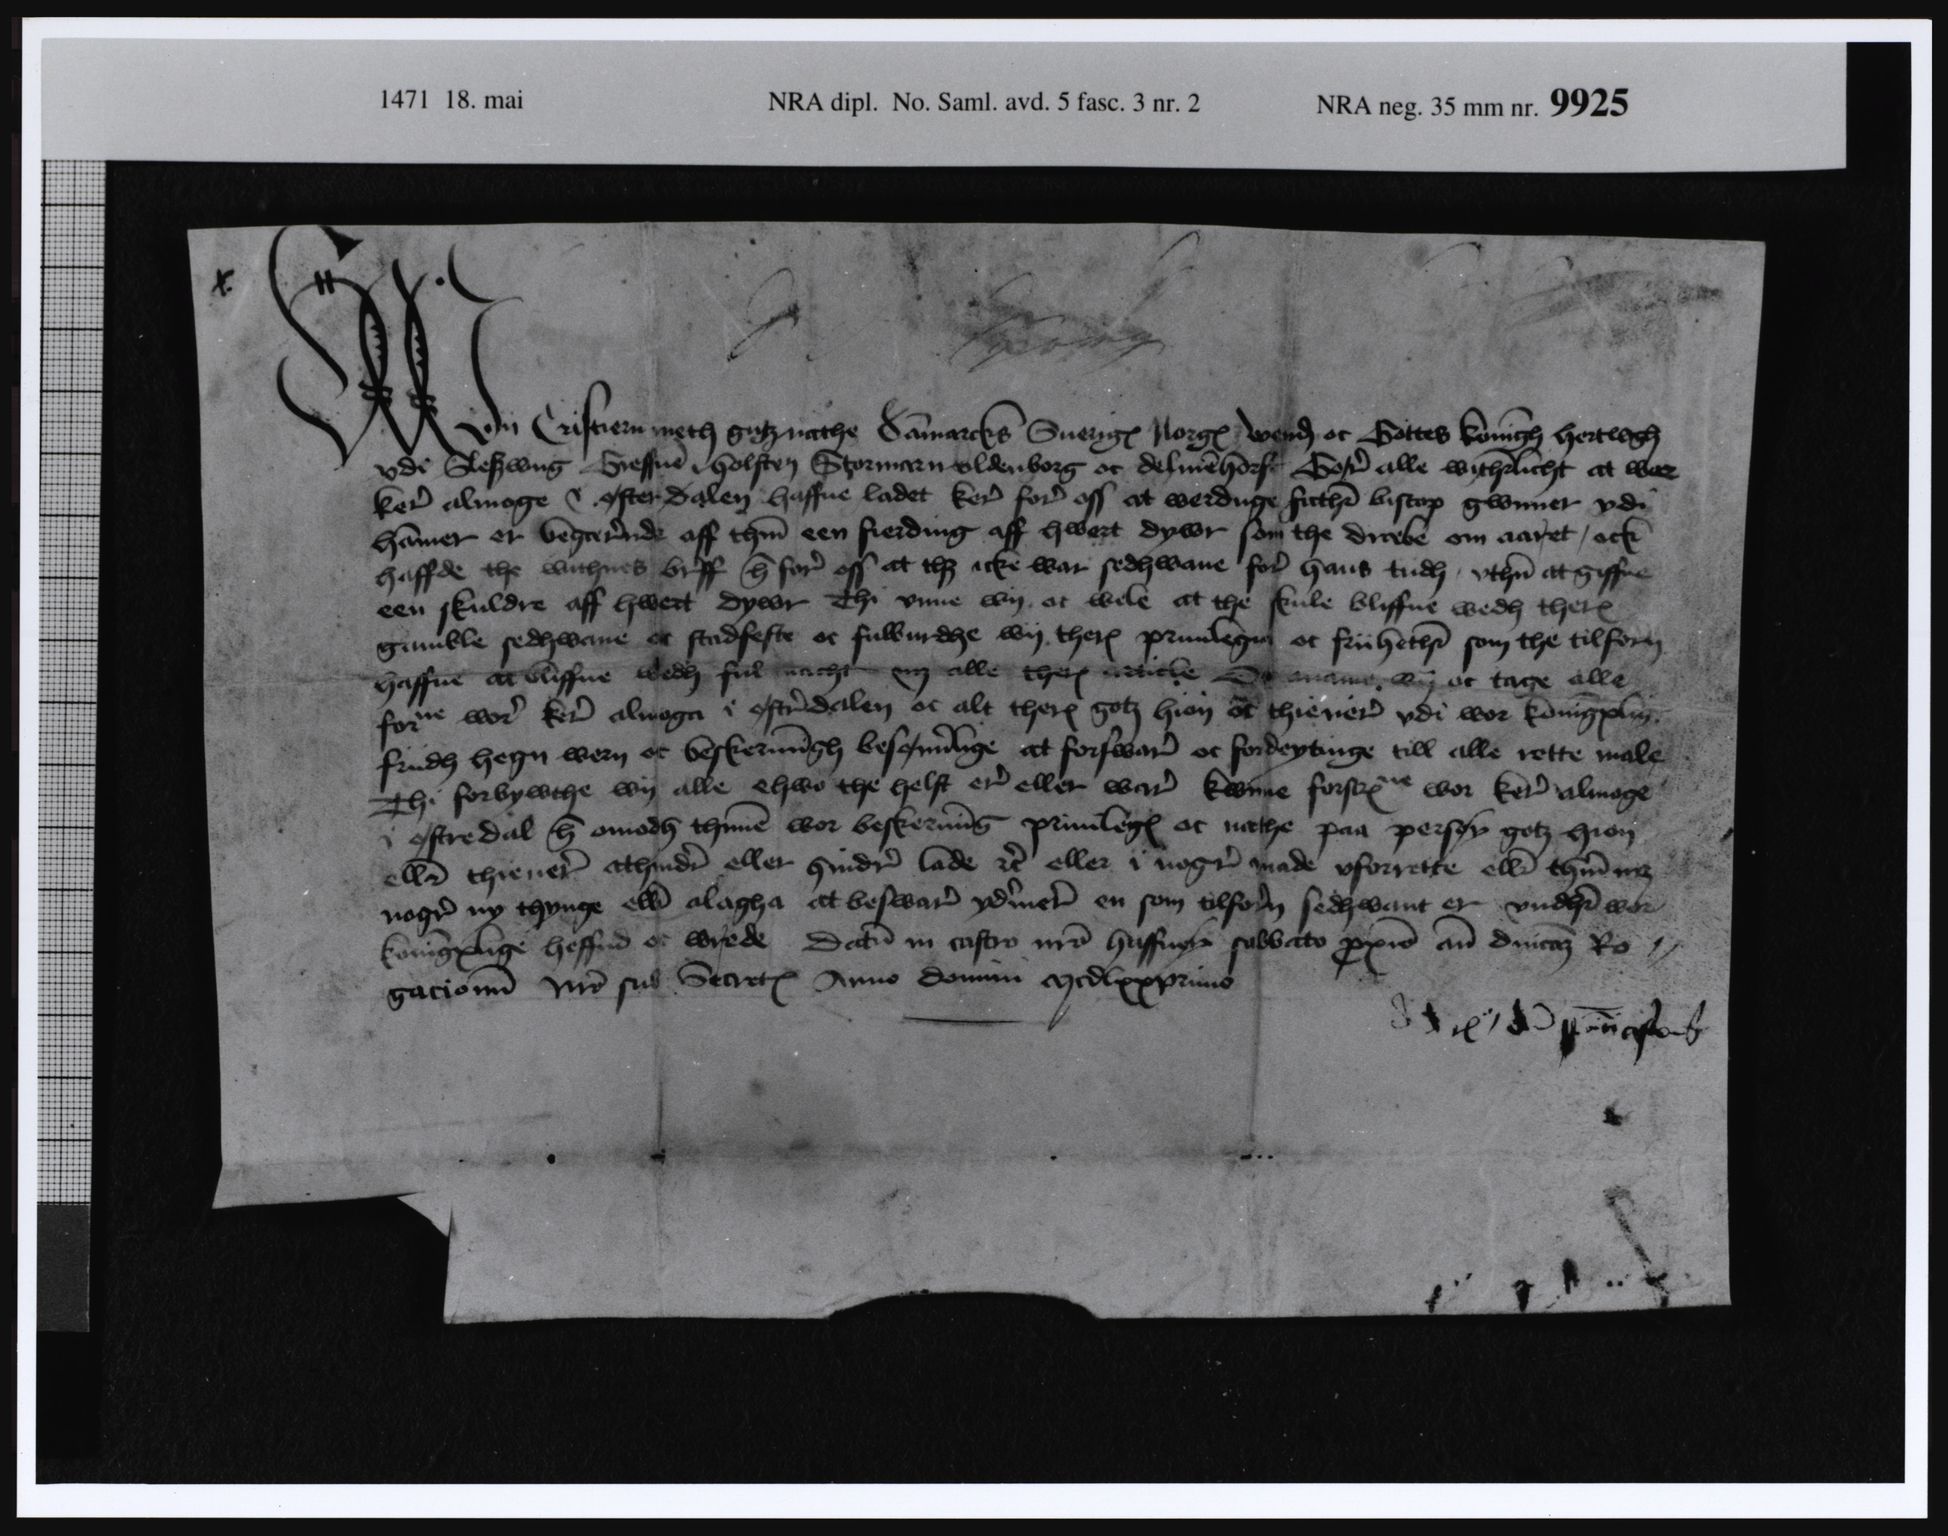 1471 18. mai NRA dipl. No. Saml. avd. 5 fasc. 3 nr. 2 NRA neg. 35 mm nr. 9925
x
Wii Cristiern meth gutz nathe Danmarcks Suerigꝭ Norgꝭ wendꝭ oc Gottes koningh hertwgh
vdi Sleszwiig Greffue i holsten Stormarn oldenborg oc delmēhorst Gøꝝ alle witherlicht at wor
kerꝭ almoge i østerdalen haffue ladet kerꝭ forꝭ oss at werduge fathꝭ biscop gwnner vdi
hamer er begærnde aff thm̄ een fierding aff hwert dywr som the dræbe om aaret / ock
haffde the withnes brff h̄ forꝭ oss at thz icke war sedhwane forꝭ hans tiidh vthn̄ at giffue
een skuldre aff hwert dywr Thi vnne wij oc wele at the skule bliffue wedh therꝭ
gamble sedhwane oc stadfeste oc fulburdhe wij therꝭ priuilegia oc friihethꝭ som the tilforn
haffue at bliffue wedh ful macht vij alle therꝭ article Oc anamme wij oc tage alle
forne worꝭ kerꝭ almoga i østrdalen oc alt therꝭ gotz hion oc thienerꝭ vdi wor koningxlig
friidh hegn wern oc beskerming besønnerlige at forswarꝭ oc fordeytinge till alle rette male
Thi forbywthe wij alle ehwo the helst erꝭ eller warꝭ kwnne forscrꝭne wor kerꝭ almoge
i østredal h̄ omodh thennē wor beskerming priuilegꝭ oc nathe paa person gotz hion
ellr̄ thienerꝭ athindrꝭ eller hindrꝭ lade ꝛc̄ eller i nogrꝭ made vforrette ellr̄ thm̄ mz
nogrꝭ ny thynge ellr̄ alagha at beswarꝭ yd'merꝭ en som tilforn sedhwant er vndhꝭ wor
koningxlige heffnd oc wrede Datū in castro nrō haffnen sabbato pxiō an̄ dnicā Ro
gacionū Nrō sub Secretꝭ Anno domini mcdlxxprimo